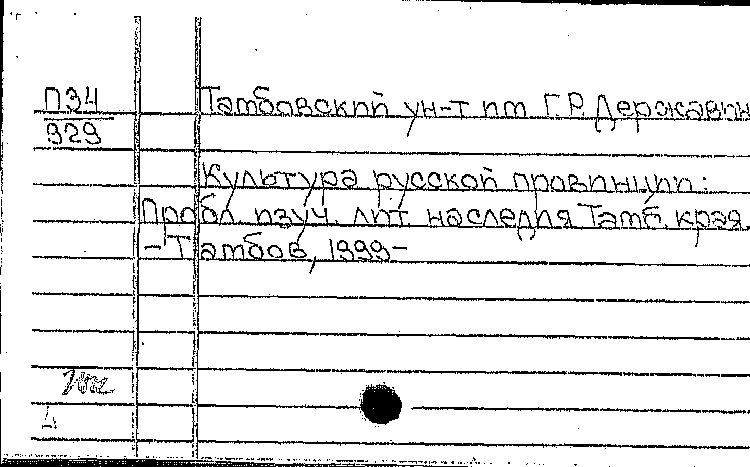 П34
929
Тамбовский ун-т им Г.Р. Державин
Культура русской провинции:
Пробл. изуч. лит. наследия Тамб. края.
- Тамбов, 1999-